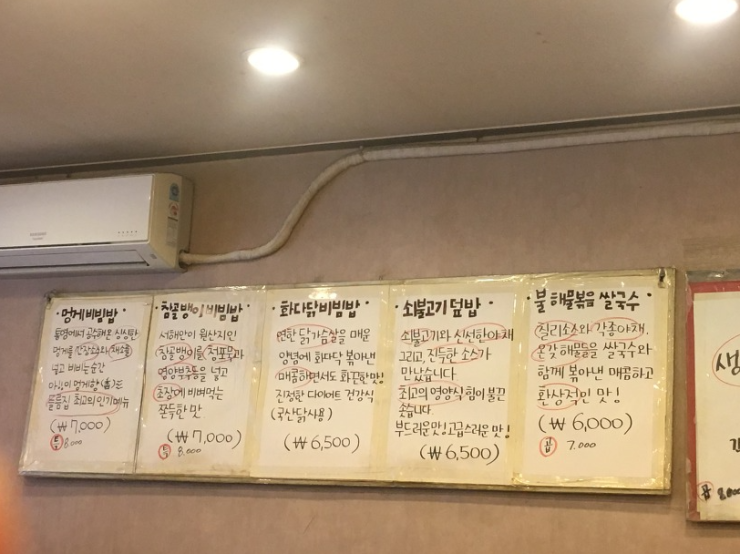 · 멍게비빔밥 ·
통영에서 공수해온 싱싱한
멍게를 간장소스와 채소를
넣고 비비는 순간
멍게향
들름집 최고의 인기메뉴
(₩7,000)
특 8,000
· 참골뱅이 비빔밥 ·
서해안이 원산지인
참골뱅이를 청포묵과
영양부추를 넣고
초장에 비벼먹는
쫀득한 맛
(₩7,000)
특 8,000
· 화다닭비빔밥 ·
연한 닭가슴살을 매운
양념에 화다닥 볶아낸
매콤하면서도 화끈한 맛!
진정한 다이어트 건강식
(국산닭사용)
(₩6,500)
· 쇠불고기 덮밥 ·
쇠불고기와 신선한야채
그리고, 진득한 소스가
만났습니다
최고의 영양식 힘이 불끈
솟습니다
부드러운맛! 고급스러운 맛!
(₩6,500)
· 불 해물볶음 쌀국수 ·
칠리소스와 각종야채,
온갖 해물들을 쌀국수와
함께 볶아낸 매콤하고
환상적인 맛!
(₩6,000)
곱 7,000
생
8,000